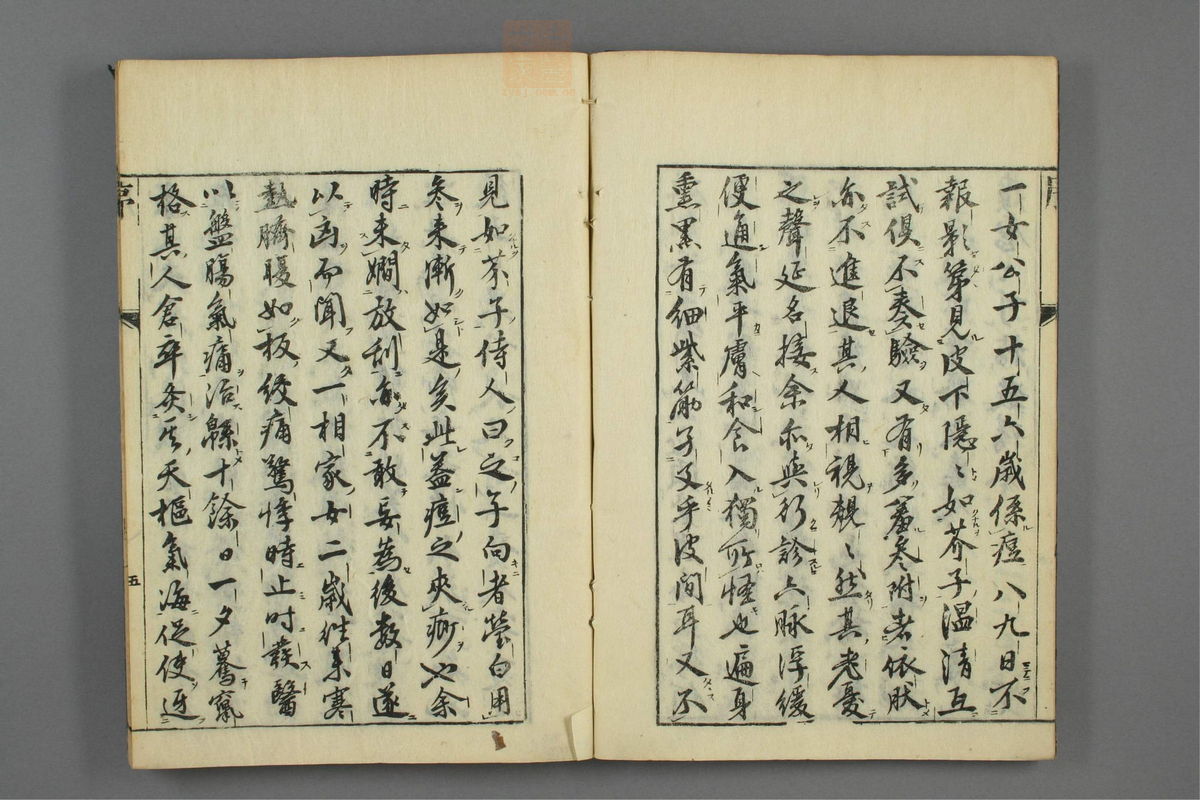 一女公子十五六歳係痘八九日不
報影第見皮下隠〻如芥子温清互
試倶不奏驗又有多羞參附者依狀
亦不進退其人相視覥〻然其老憂
之聲延名接余亦與診六脉浮緩
便通氣平膚和食入獨所怪也遍身
熏黒有細紫筋子叉乎皮間耳又不
見如芥子侍人曰之子向者瑩白用
參来漸如是矣此蓋痘之夾痧也余
時未嫺放刮亦不敢妄為後数日遂
以凶而聞又一相家女二歳作来寒
熱臍腹如板絞痛驚悸時止时發醫
以盤腸氣痛治緜十餘日一夕驀竄
格其人倉卒灸其天樞氣海促使迓
序
五